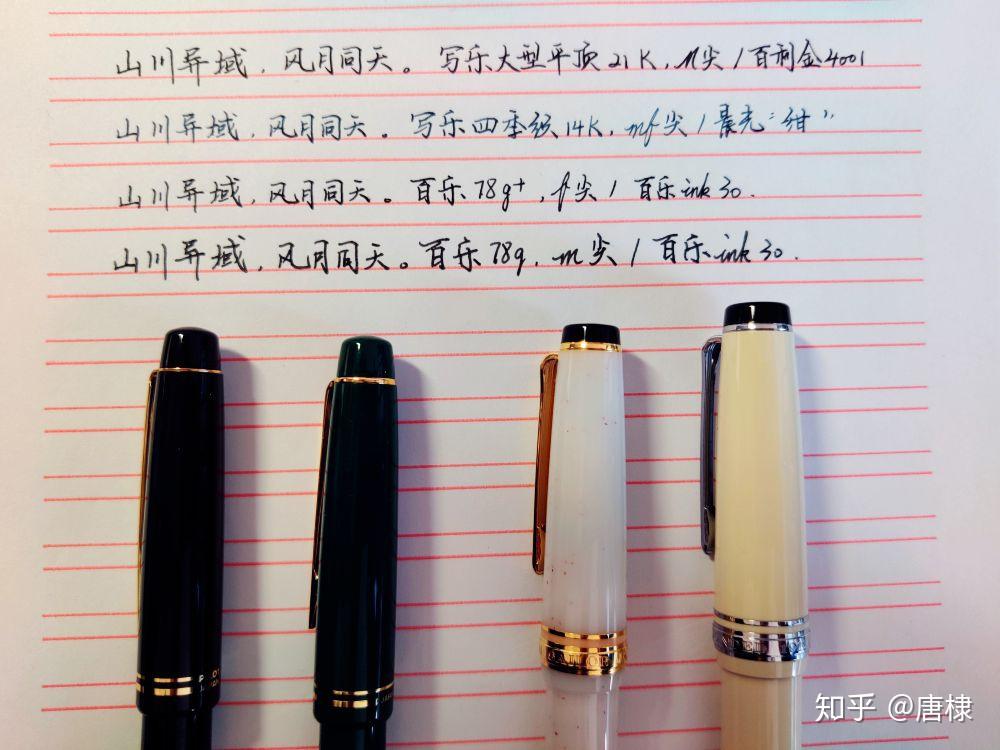 山川异域，风月同天。写乐大型平顶21K，M尖/百利金4001
山川异域，风月同天。写乐四季织14K，mf尖/墨壳“绀”
山川异域，风月同天。百乐78g+，f尖/百乐ink30.
山川异域，风月同天。百乐78g，m尖/百乐ink30.
PILOT
SAILOR
知乎 @唐棣